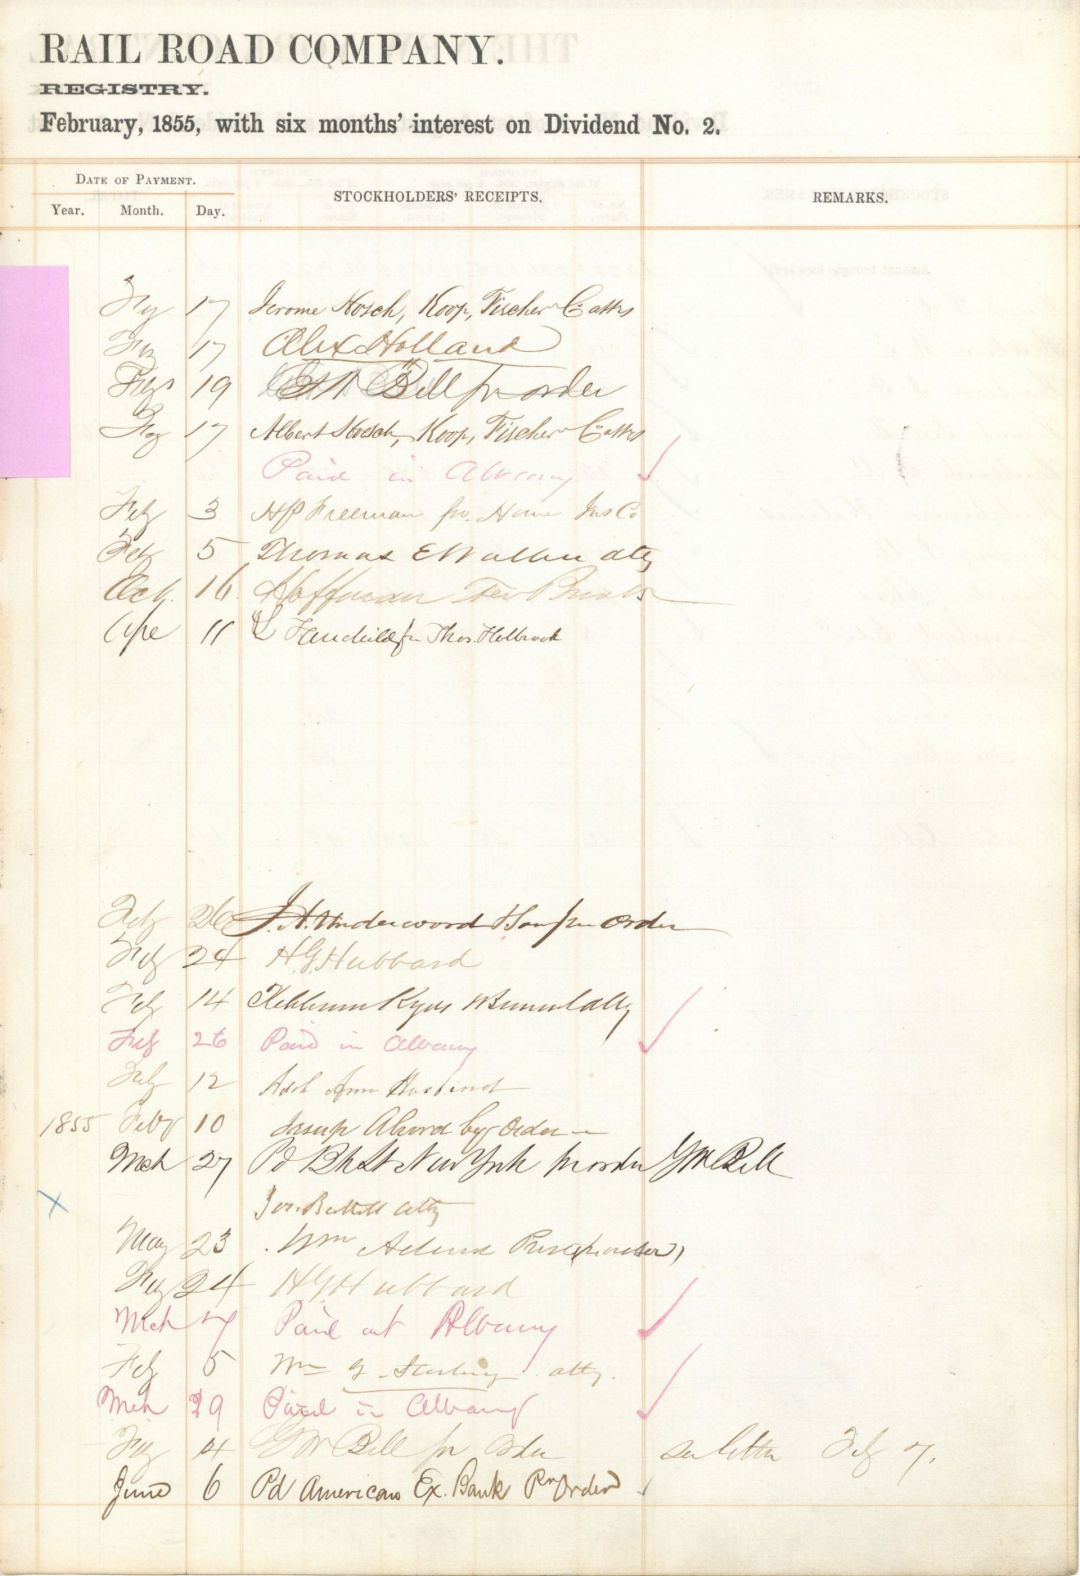 RAIL ROAD COMPANY.
REGISTRY.
February, 1855, with six months' interest on Dividend No. 2.
DATE OF PAYMENT.
STOCKHOLDERS' RECEIPTS.
REMARKS.
Year. Month. Day.
17 Jerome Hosch, Koop, Fischer & Co attys
17 Alex Holland
19 Bell pr order
17 Albert Hosch, Koop, Fischer & Co attys
Paid in Albany
Feb 3 H P Freeman for Home Ins Co
Feb 5 Thomas E Walker atty
Oct. 16 Hoffman
Apl 11 for Thos. Holbrook
Feb 26 J. A. Underwood & Son pr order
Feb 24 H G Hubbard
Feb 14 atty
Feb 26 Paid in Albany
Feb 12 Ann
1855 Feby 10 Jesup Alvord by Order
Mch 27 Pd Bk St New York pr order G W Bell
Jos. Battell atty
May 23 Wm
Feb 24 H G Hubbard
Mch 7 Paid at Albany
Feb 5 Wm G Sterling atty.
Mch 29 Paid in Albany
4 G W Bell for Order see letter Feb 7.
June 6 Pd American Ex. Bank Pr Order